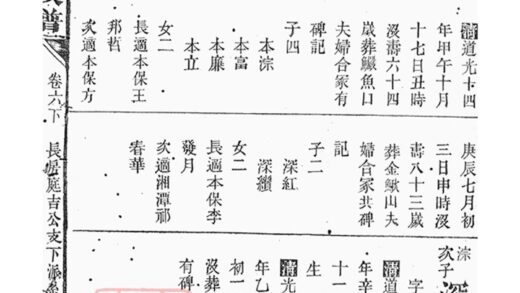 清道光十四
年甲午十月
十七日丑時
沒壽六十四
歲葬鰥魚口
夫婦合冢有
碑記
子四
本淙
本富
本廉
本立
女二
長適本保王
邦哲
次適本保方
庚辰七月初
三日申時沒
壽八十三歲
葬金鰍山夫
婦合冢共碑
記
子二
深紅
深纘
女二
長適本保李
發月
次適湘潭祁
春華
淙
次子
字
清道
年辛
十一
生
清光
年乙
初一
沒葬
有碑
譜
卷六下
長房庭吉公支下派系